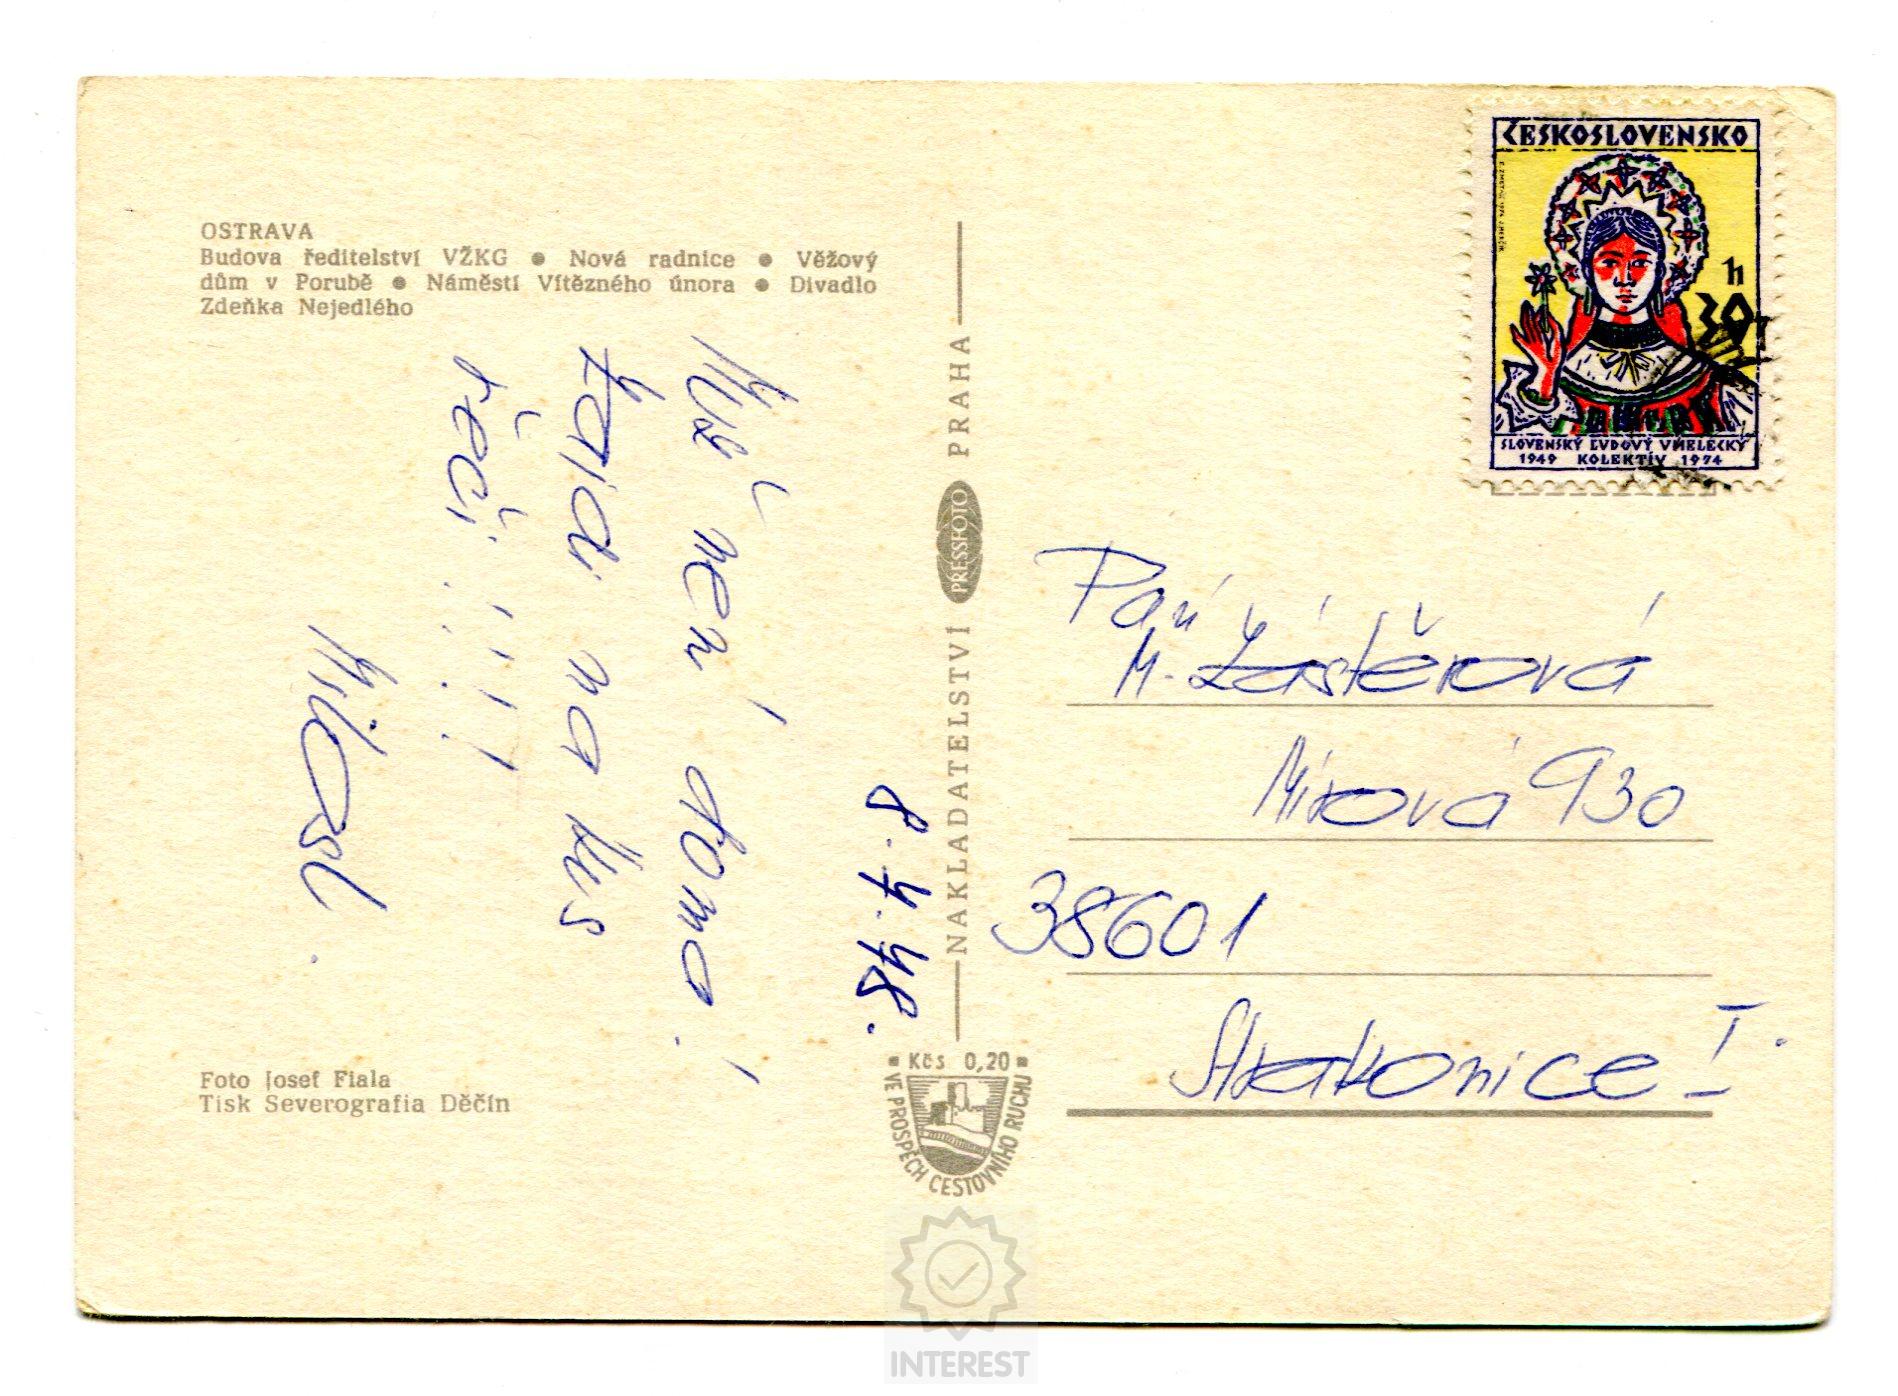 OSTRAVA
Budova ředitelství VŽKG ● Nová radnice ● Věžový
dům v Porubě ● Náměstí Vítězného února ● Divadlo
Zdeňka Nejedlého
není doma!
na kus
řeči!!!!
Miloš
8.4.48.
Foto Josef Fiala
Tisk Severografia Děčín
NAKLADATELSTVÍ PRESSFOTO PRAHA
Kčs 0,20
VE PROSPĚCH CESTOVNÍHO RUCHU
ČESKOSLOVENSKO
30 h
SLOVENSKÝ ĽUDOVÝ UMELECKÝ
1949 KOLEKTÍV 1974
Paní
M. Zástěrová
Mírová 930
38601
Strakonice I.
INTEREST